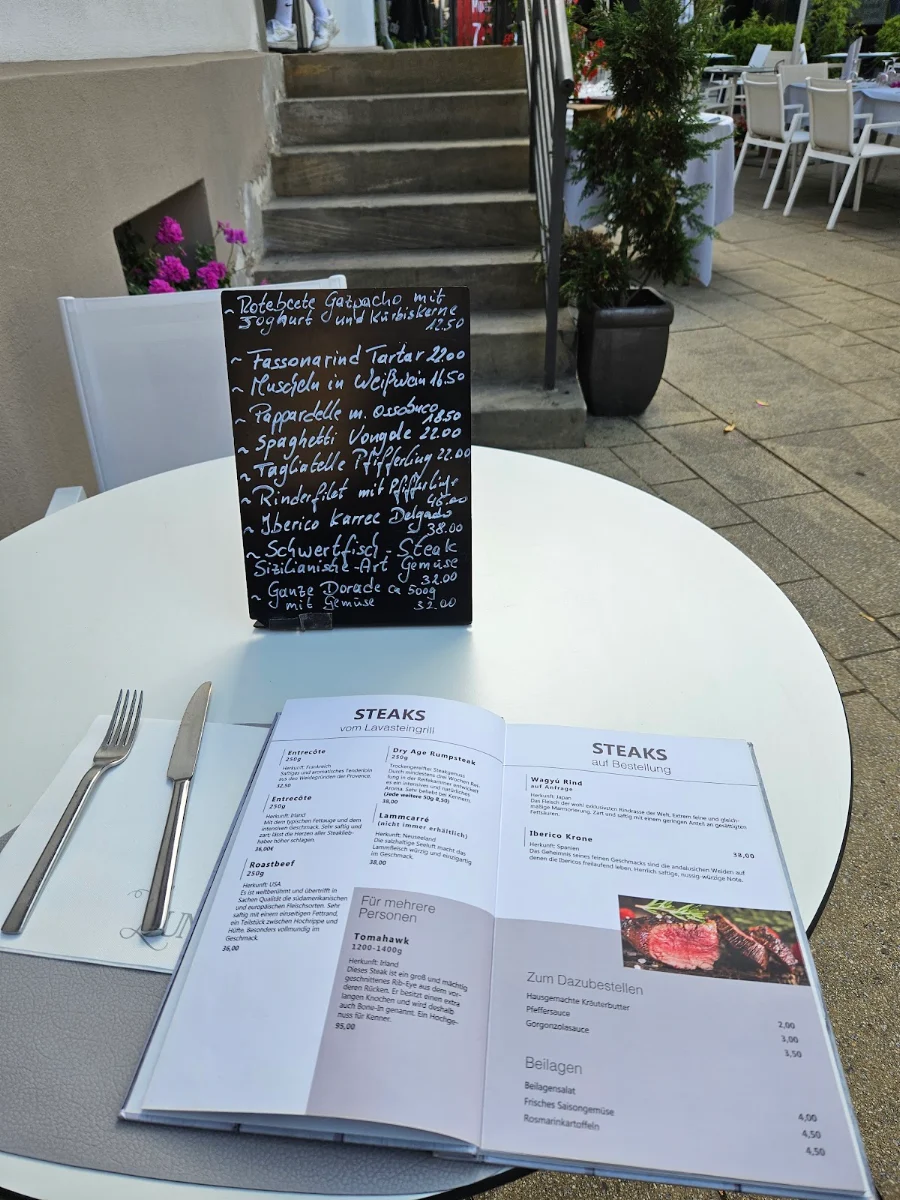 ~ Rotebeete Gazpacho mit
Joghurt und Kürbiskerne
12.50
~ Fassonarind Tartar 22.00
~ Muscheln in Weißwein 16.50
~ Pappardelle m. Ossobuco
18.50
~ Spaghetti Vongole 22.00
~ Tagliatelle Pfifferling 22.00
~ Rinderfilet mit Pfifferlinge
46.00
~ Iberico Karree Delgado
38.00
~ Schwertfisch - Steak
Sizilianische-Art Gemüse
32.00
~ Ganze Dorade ca 500g
mit Gemüse 32.00
STEAKS
vom Lavasteingrill
Entrecôte
250g
Herkunft: Frankreich
Saftiges und aromatisches Tenderloin
aus den Weidegründen der Provence
32,50
Entrecôte
250g
Herkunft: Irland
Mit dem typischen Fettauge und dem
intensiven Geschmack. Sehr saftig und
zart lässt die Herzen aller Steaklieb-
haber höher schlagen.
36,00€
Roastbeef
250g
Herkunft: USA
Es ist weltberühmt und übertrifft in
Sachen Qualität die südamerikanischen
und europäischen Fleischsorten. Sehr
saftig mit einem einseitigen Fettrand,
ein Teilstück zwischen Hochrippe und
Hüfte. Besonders vollmundig im
Geschmack.
36,00
Dry Age Rumpsteak
250g
Trockengereifter Steakgenuss
Durch mindestens drei Wochen Rei-
fung in der Reifekammer entwickelt
es ein intensives und natürliches
Aroma. Sehr beliebt bei Kennern.
(Jede weitere 50g 8,50)
38,00
Lammcarré
(nicht immer erhältlich)
Herkunft: Neuseeland
Die salzhaltige Seeluft macht das
Lammfleisch würzig und einzigartig
im Geschmack.
38,00
Für mehrere
Personen
Tomahawk
1200-1400g
Herkunft: Irland
Dieses Steak ist ein groß und mächtig
geschnittenes Rib-Eye aus dem vor-
deren Rücken. Er besitzt einen extra
langen Knochen und wird deshalb
auch Bone-In genannt. Ein Hochge-
nuss für Kenner.
95,00
STEAKS
auf Bestellung
Wagyú Rind
auf Anfrage
Herkunft: Japan
Das Fleisch der wohl exklusivsten Rindrasse der Welt. Extrem feine und gleich-
mäßige Marmorierung. Zart und saftig mit einem geringen Anteil an gesättigten
Fettsäuren.
Iberico Krone 38,00
Herkunft: Spanien
Das Geheimnis seines feinen Geschmacks sind die andalusischen Weiden auf
denen die Ibericos freilaufend leben. Herrlich saftige, nussig-würdige Note.
Zum Dazubestellen
Hausgemachte Kräuterbutter 2,00
Pfeffersauce 3,00
Gorgonzolasauce 3,50
Beilagen
Beilagensalat 4,00
Frisches Saisongemüse 4,50
Rosmarinkartoffeln 4,50